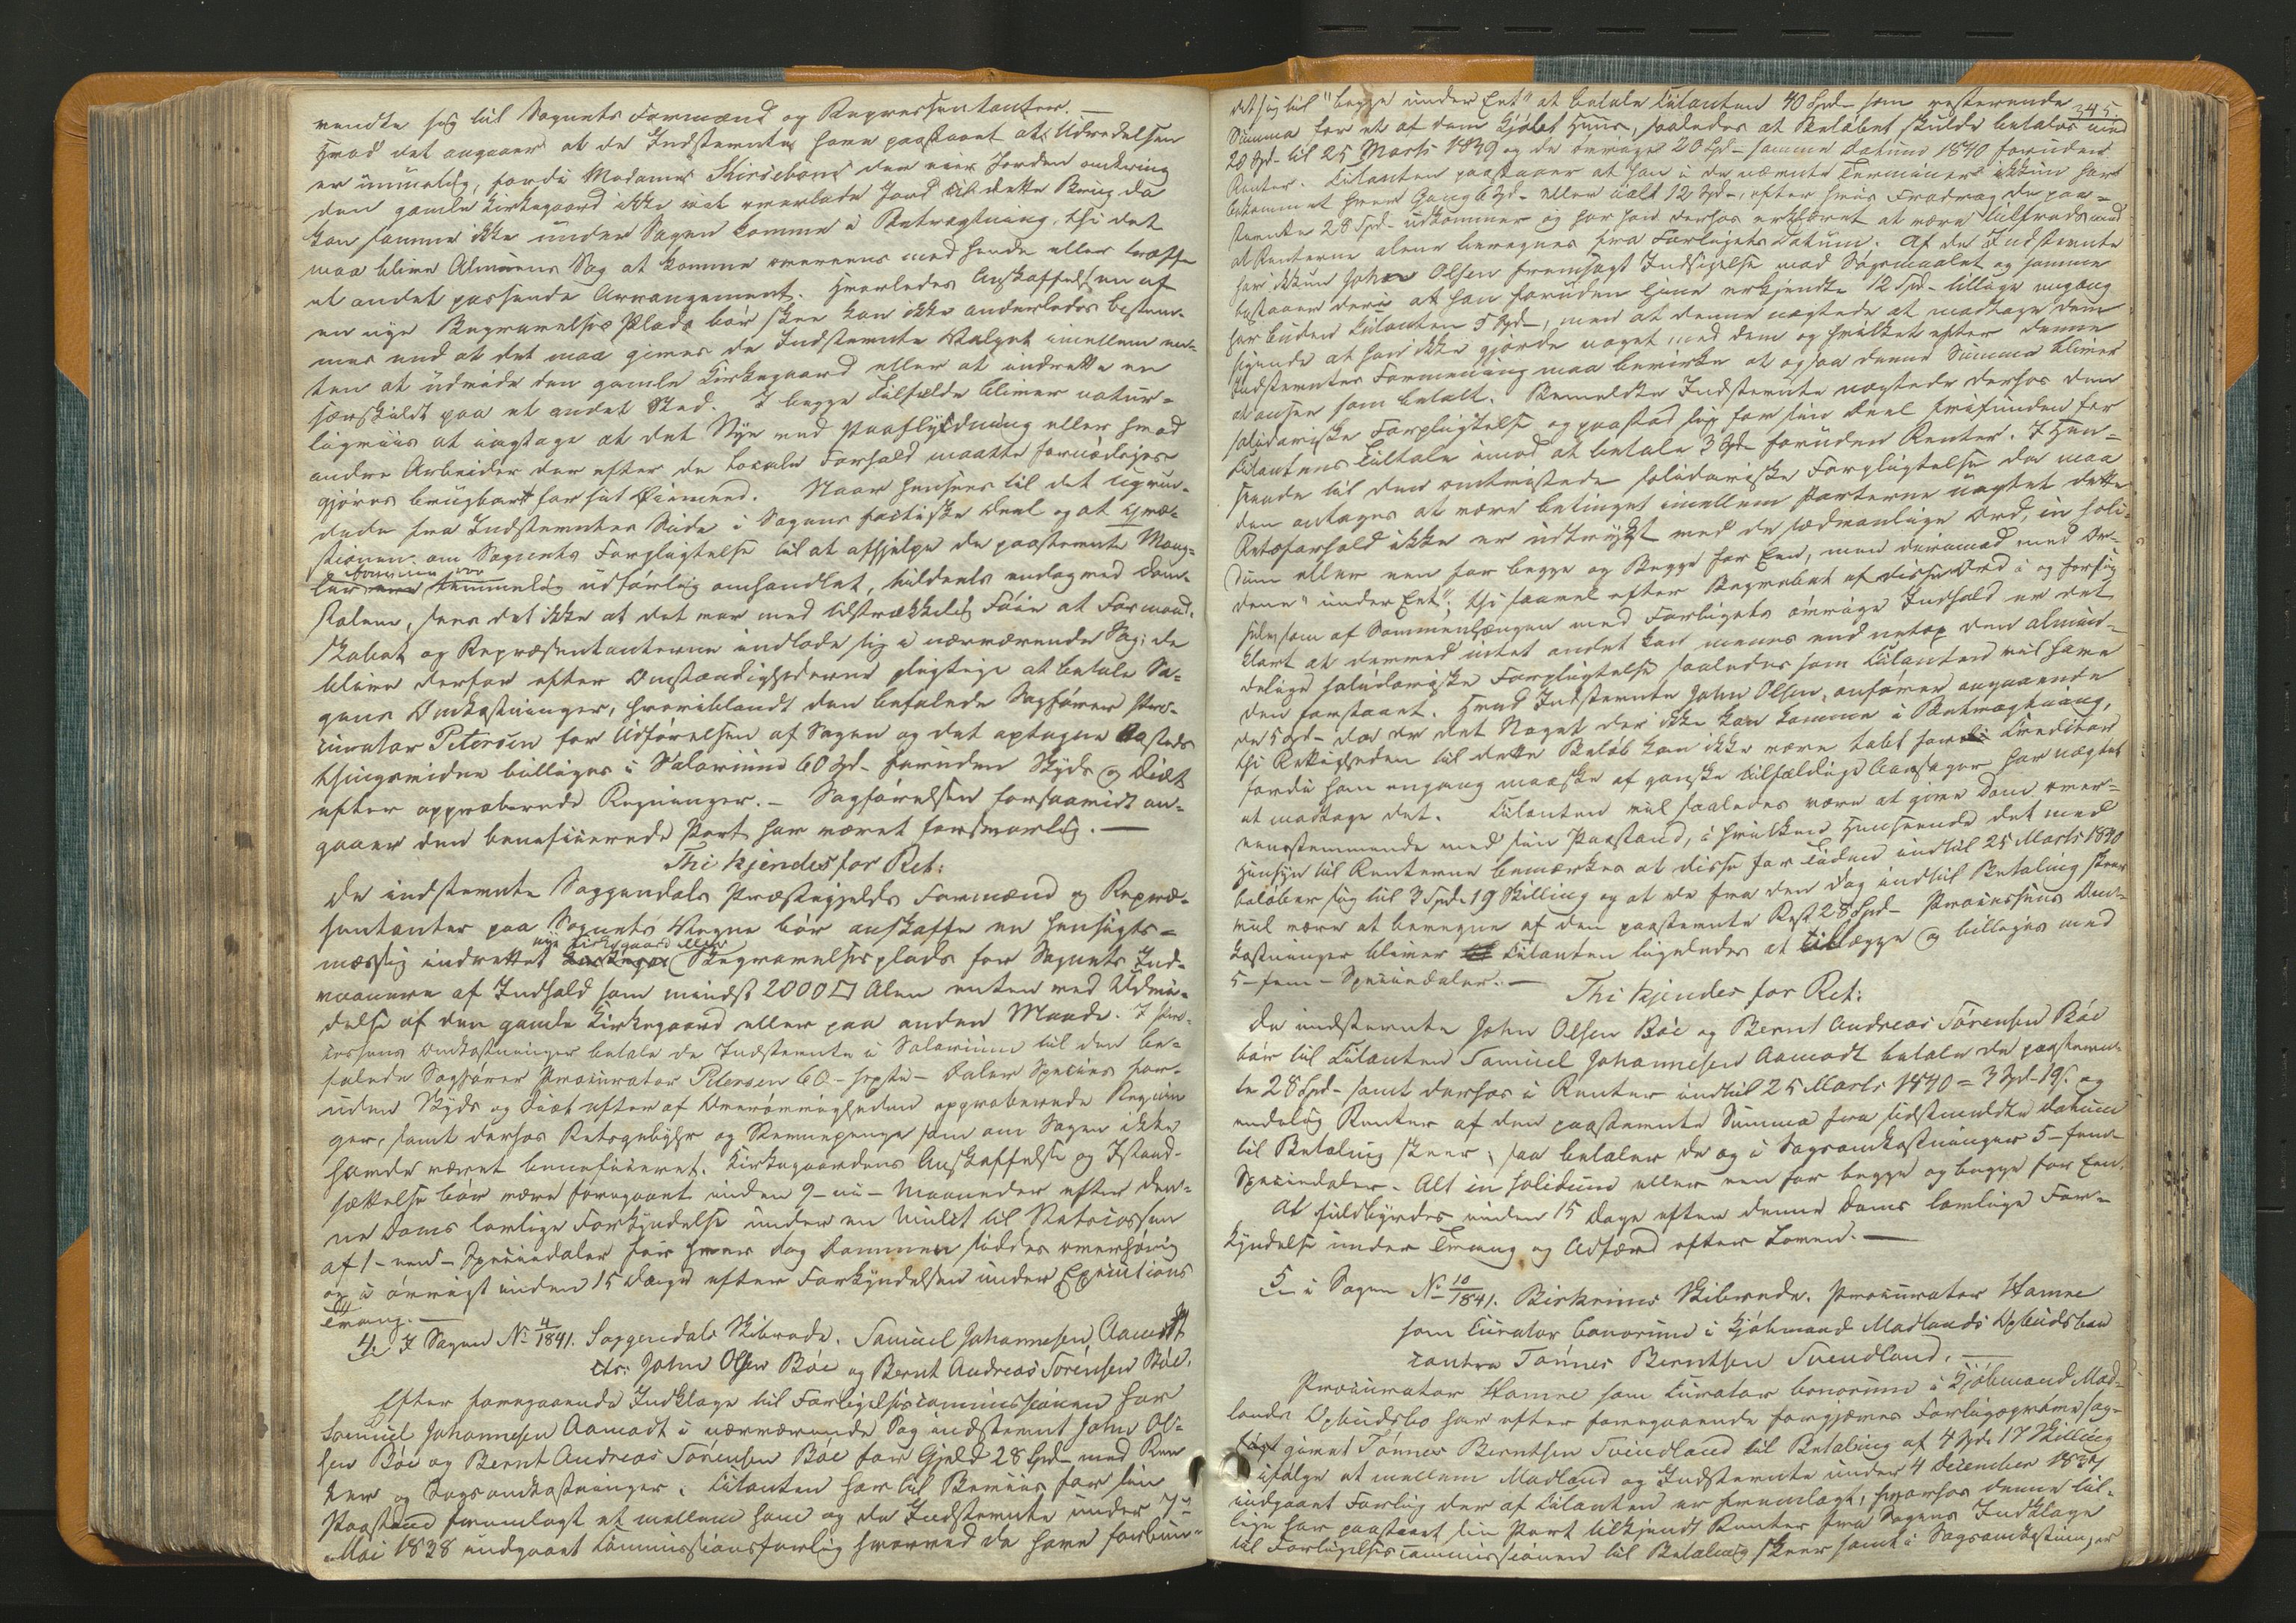 vendte sig til Sognets Formænd og Repræsentanter. —
Hvad det angaaer at de Indstevnte have paastaaet at Udvidelsen
er umuelig, fordi Madame Kirsebom der eier Jorden omkring
den gamle Kirkegaard ikke vil overlade Jord til dette Brug da
kan samme ikke under Sagen komme i Betragtning, thi det
maa blive Almuens Sag at komme overeens med hende eller træffe
et andet passende Arrangement. Hvorledes Anskaffelsen af
en nye Begravelses Plads bør skee kan ikke anderledes bestem-
mes end at det maa gives de Indstevnte Valget imellem en-
ten at udvide den gamle Kirkegaard eller at indrette en
særskildt paa et andet Sted. I begge Tilfælde bliver natur-
ligviis at iagttage at det Nye ved Paafyldning eller hvad
andre Arbeider der efter de locale Forhold maatte fornødiges
gjøres brugbart for sit Øiemeed. Naar henseees til det ugrun-
dede fra Indstevntes Side i Sagens factiske Deel og at qvæ-
stionen om Sognets Forpligtelse til at afhjelpe de paastevnte Mang-
ler var temmelig udførlig omhandlet, tildeels endog ved Dom-
stolene, sees det ikke at det var med tilstrækkelig Føie at Formand-
skabet og Repræsentanterne indlode sig i nærværende Sag; de
blive derfor efter Omstændighederne pligtige at betale Sa-
gens Omkostninger, hvoriblandt den befalede Sagfører Pro-
curator Petersen for Udførelsen af Sagen og det optagne Aasteds
thingsvidne billiges i Salarium 60 Spd. foruden Skyds og Diæt
efter approberede Regninger. — Sagførelsen forsaavidt an-
gaaer den beneficerede Part har været forsvarlig. —
Thi kjendes for Ret:
De indstevnte Soggendals Præstegjelds Formænd og Repræ-
sentanter paa Sognets Vegne bør anskaffe en hensigts-
mæssig indrettet nye Kirkegaard eller Begravelsesplads for Sognets Ind-
vaanere af Indhold som mindst 2000 □ Alen enten ved Udvi-
delse af den gamle Kirkegaard eller paa anden Maade. I Pro-
cessens Omkostninger betale de Indstevnte i Salarium til den be-
falede Sagfører Procurator Petersen 60 - sexti - Daler Species for-
uden Skyds og Diæt efter af Øvrigheden approberede Regnin
ger, samt derhos Retsgebyhr og Stevnepenge som om Sagen ikke
havde været beneficeret. Kirkegaardens Anskaffelse og Istand-
sættelse bør være foregaaet inden 9 - ni - Maaneder efter den-
ne Doms lovlige Forkyndelse under en Mulct til Statscassen
af 1 - een - Speciedaler for hver Dag Dommen siddes overhørig
og i øvrigt inden 15 Dage efter Forkyndelsen under Executions
Tvang. —
4. I Sagen No 4/1841. Soggendals Skibrede. Samuel Johannesen Aamodt
ctr: John Olsen Bøe og Bernt Andreas Sørensen Bøe.
Efter foregaaende Indklage til Forligelsescommissionen har
Samuel Johannesen Aamodt i nærværende Sag indstevnt John Ol-
sen Bøe og Bernt Andreas Sørensen Bøe for Gjeld 28 Spd. med Ren
ter og Sagsomkostninger. Citanten har til Beviis for sin
Paastand fremlagt et mellem ham og de Indstevnte under
Mai 1838 indgaaet Commissionsforlig hvorved de have forbun-
345.
det sig til "begge under Eet" at betale Citanten 40 Spd. som resterende
Summa for et af dem kjøbt Huus, saaledes at Beløbet skulde betales med
20 Spd. til 25 Marts 1839 og de øvrige 20 Spd. samme Datum 1840 foruden
Renter. Citanten paastaaer at han i de nævnte Terminer ikkun har
bekommet hver Gang 6 Spd. eller ialt 12 Spd., efter hvis Fradrag de paa-
stevnte 28 Spd. udkommer og har han derhos erklæret at være tilfreds med
at Renterne alene beregnes fra Forligets Datum. Af de Indstevnte
har ikkun John Olsen fremsagt Indsigelse mod Søgsmaalet og samme
bestaaer deri at han foruden hine erkjendte 12 Spd. tillige engang
har buden Citanten 5 Spd., men at denne nægtede at modtage dem
sigende at han ikke gjorde noget med dem og hvilket efter denne
Indstevntes Formening maa bevirke at ogsaa denne Summa bliver
at ansee som betalt. Bemeldte Indstevnte nægtede derhos den
solidariske Forpligtelse og paastod sig for sin Deel frifunden for
Citantens Tiltale imod at betale 3 Spd. foruden Renter. I Hen-
seende til den omtvistede solidariske Forpligtelse da maa
den antages at være betinget imellem Parterne uagtet dette
Retsforhold ikke er udtrykt med de sædvanlige Ord, in soli-
dum eller een for begge og Begge for Een, men derimod med Or-
dene "under Eet"; thi saavel efter Begrebet af disse Ord i og for sig
selv, som af Sammenhængen med Forligets øvrige Indhold er det
klart at derved intet andet kan menes end netop den almin-
delige solidariske Forpligtelse saaledes som Citanten vil have
den forstaaet. Hvad Indstevnte John Olsen anfører angaaende
de 5 Spd. da er det Noget der ikke kan komme i Betragtning,
thi Rettigheden til dette Beløb kan ikke være tabt for Creditor
fordi han engang maaske af ganske tilfældige Aarsager har nægtet
at modtage det. Citanten vil saaledes være at give Dom over-
eensstemmende med sin Paastand, i hvilken Henseende det med
Hensyn til Renterne bemærkes at disse for Tiden indtil 25 Marts 1840
beløber sig til 3 Spd. 19 Skilling og at de fra den Dag indtil Betaling skeer
vil være at beregne af den paastevnte Rest 28 Spd. Processens Om-
kostninger bliver Citanten ligeledes at tillægge og billiges med
5 - fem - Speciedaler. —
Thi kjendes for Ret:
De indstevnte John Olsen Bøe og Bernt Andreas Sørensen Bøe
bør til Citanten Samuel Johannesen Aamodt betale de paastevn-
te 28 Spd. samt derhos i Renter indtil 25 Marts 1840 = 3 Spd. 19 s. og
endelig Renter af den paastevnte Summa fra sidstmeldte Datum
til Betaling skeer, saa betaler de og i Sagsomkostninger 5 - fem
Speciedaler. Alt in solidum eller een for begge og begge for Een.
At fuldbyrdes inden 15 Dage efter denne Doms lovlige For-
kyndelse under Tvang og Adfærd efter Loven. —
5. i Sagen No 10/1841. Birkrims Skibrede. Procurator Hamre
som Curator bonorum i Kjøbmand Madlands Opbudsboe
contra Tønnes Berntsen Svendland. —
Procurator Hamre som Curator bonorum i Kjøbmand Mad-
lands Opbudsbo har efter foregaaende forgjæves Forligsprøve sag-
søgt Tønnes Berntsen Svindland til Betaling af 4 Spd. 17 Skilling
ifølge et mellem Madland og Indstevnte under 4 December
indgaaet Forlig der af Citanten er fremlagt, hvorhos denne til-
lige har paastaaet sin Part tilkjendt Renter fra Sagens Indklage
til Forligelsescommissionen til Betaling skeer samt i Sagsomkostninger